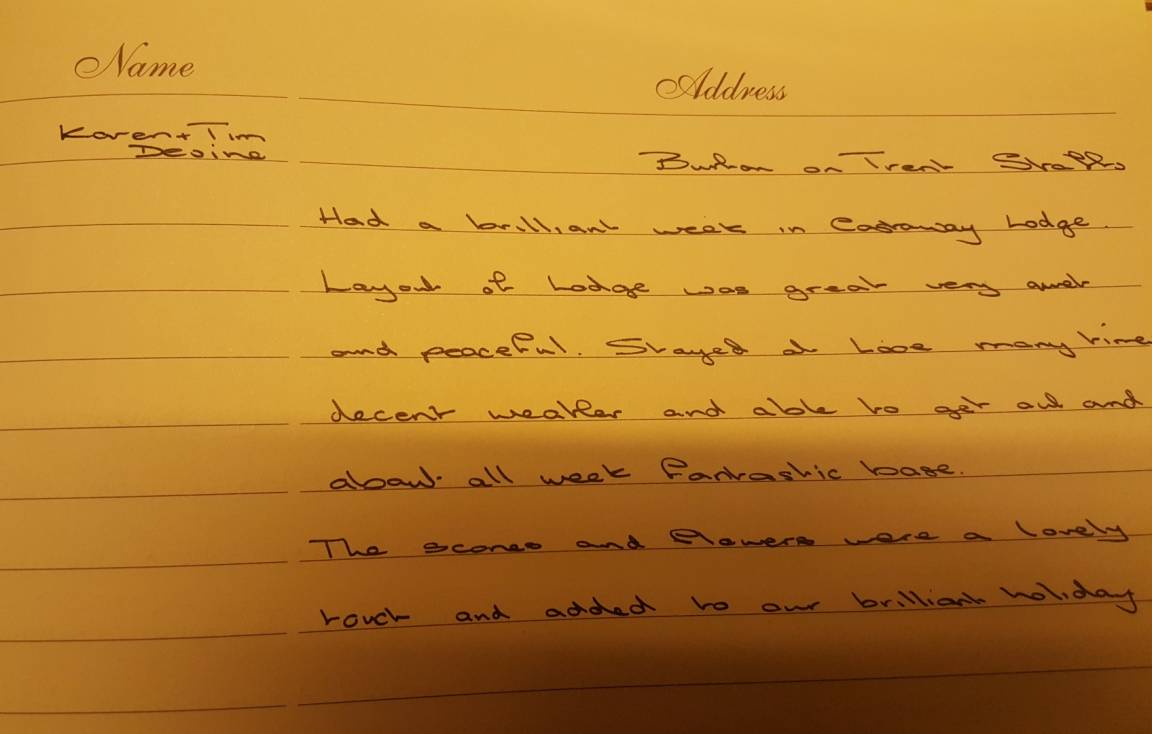 Name
Address
Karen + Tim
Devine
Burton on Trent Staffs
Had a brilliant week in Castaway Lodge.
Layout of Lodge was great very quiet
and peaceful. Stayed at Looe many time
decent weather and able to get out and
about all week fantastic base.
The scones and flowers were a lovely
touch and added to our brilliant holiday